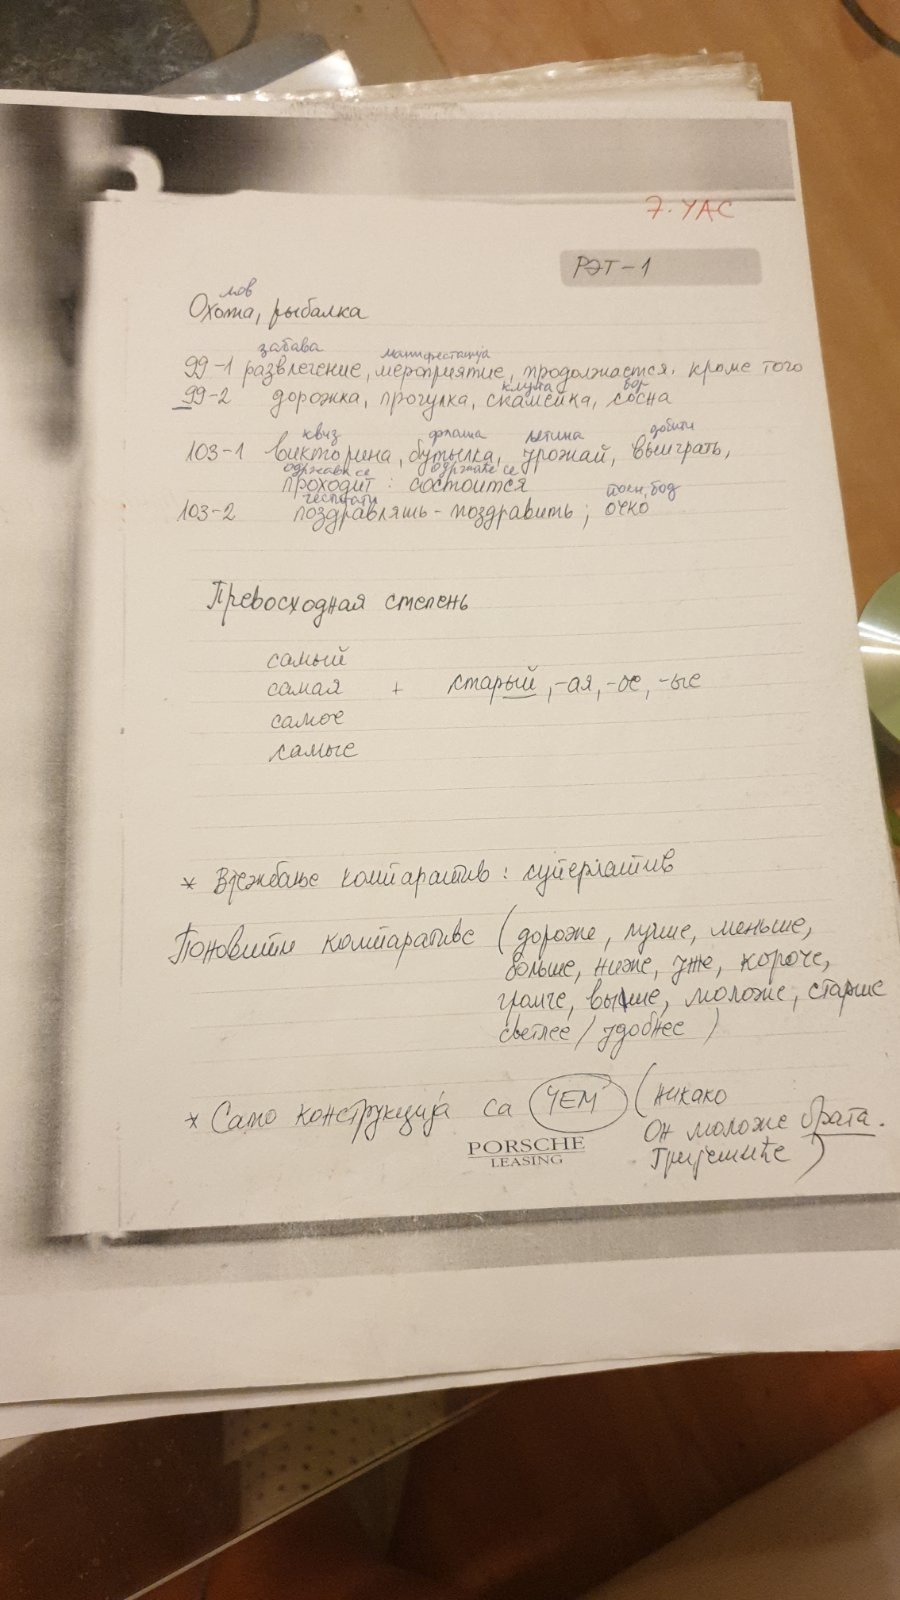 7. ЧАС
РЭТ-1
лов
Охота, рыбалка
забава манифестација
99-1 развлечение, мероприятие, продолжается, кроме того
клупа бор
99-2 дорожка, прогулка, скамейка, сосна
квиз флаша љетина добити
103-1 викторина, бутылка, урожай, выиграть,
одржава се одржаће се
проходит : состоится
честитати поен, бод
103-2 поздравлять - поздравить ; очко
Превосходная степень
самый
самая + старый, -ая, -ое, -ые
самое
самые
* Вјежбање компаратив : суперлатив
Поновити компаративе (дороже, лучше, меньше,
больше, ниже, уже, короче,
громче, выше, моложе, старше
светлее / удобнее )
* Само конструкција са ЧЕМ (никако
Он моложе брата.
Гријешиће )
PORSCHE
LEASING